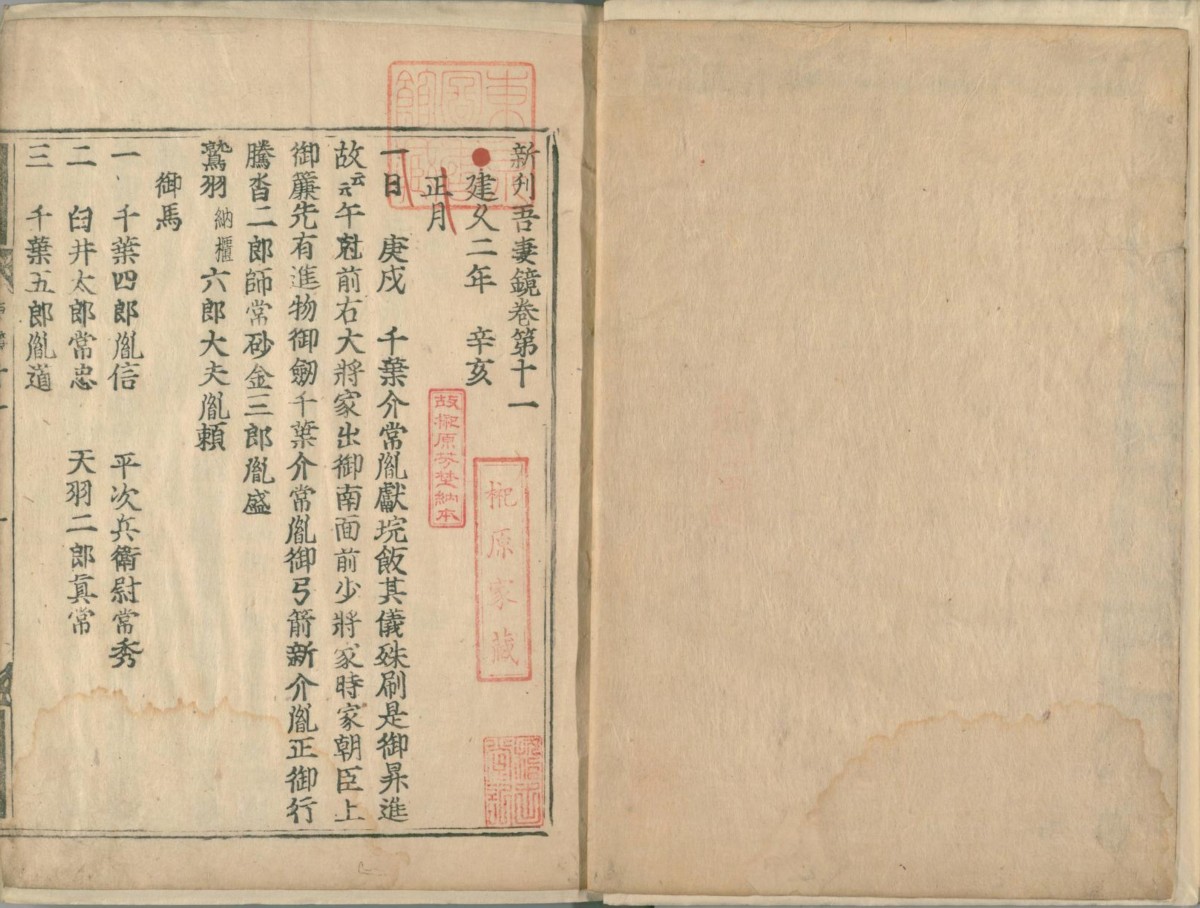 新刋吾妻鏡巻第十一
建久二年　辛亥
正月
一日　庚戌　千葉介常胤獻垸飯其儀殊刷是御昇進
故云元午尅前右大將家出御南面前少將家時家朝臣上
御簾先有進物御劔千葉介常胤御弓箭新介胤正御行
騰沓二郎師常砂金三郎胤盛
鷲羽納櫃六郎大夫胤頼
御馬
一　千葉四郎胤信　平次兵衛尉常秀
二　臼井太郎常忠　天羽二郎真常
三　千葉五郎胤道
故榊原芳埜納本
榊原家藏